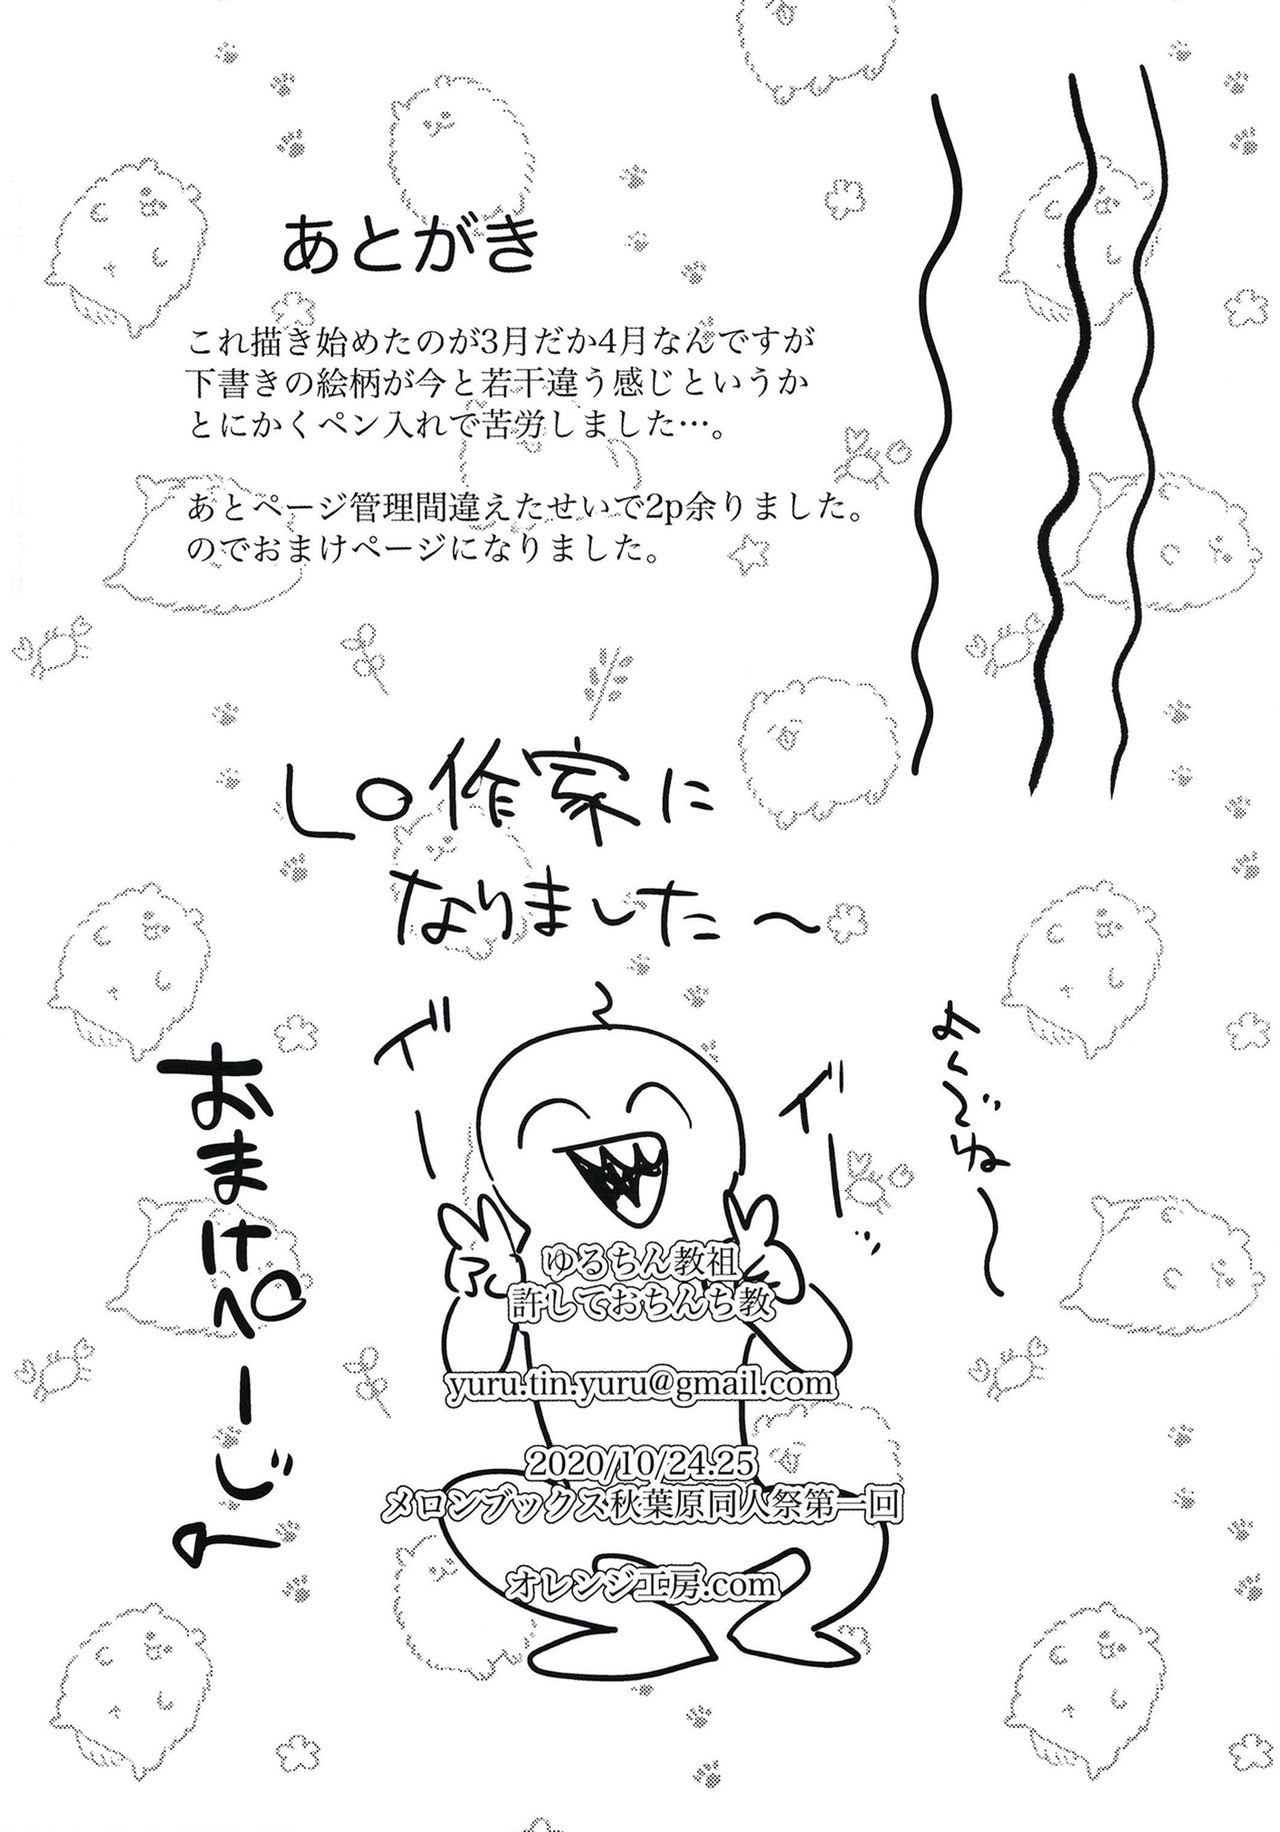 あとがき
これ描き始めたのが3月だか4月なんですが
下書きの絵柄が今と若干違う感じというか
とにかくペン入れで苦労しました…。
あとページ管理間違えたせいで2p余りました。
のでおまけページになりました。
LO作家に
なりました〜
イ゛ー
イ゛ー
よんでね〜
おまけぺーじ
ゆるちん教祖
許しておちんち教
yuru.tin.yuru@gmail.com
2020/10/24.25
メロンブックス秋葉原同人祭第一回
オレンジ工房.com